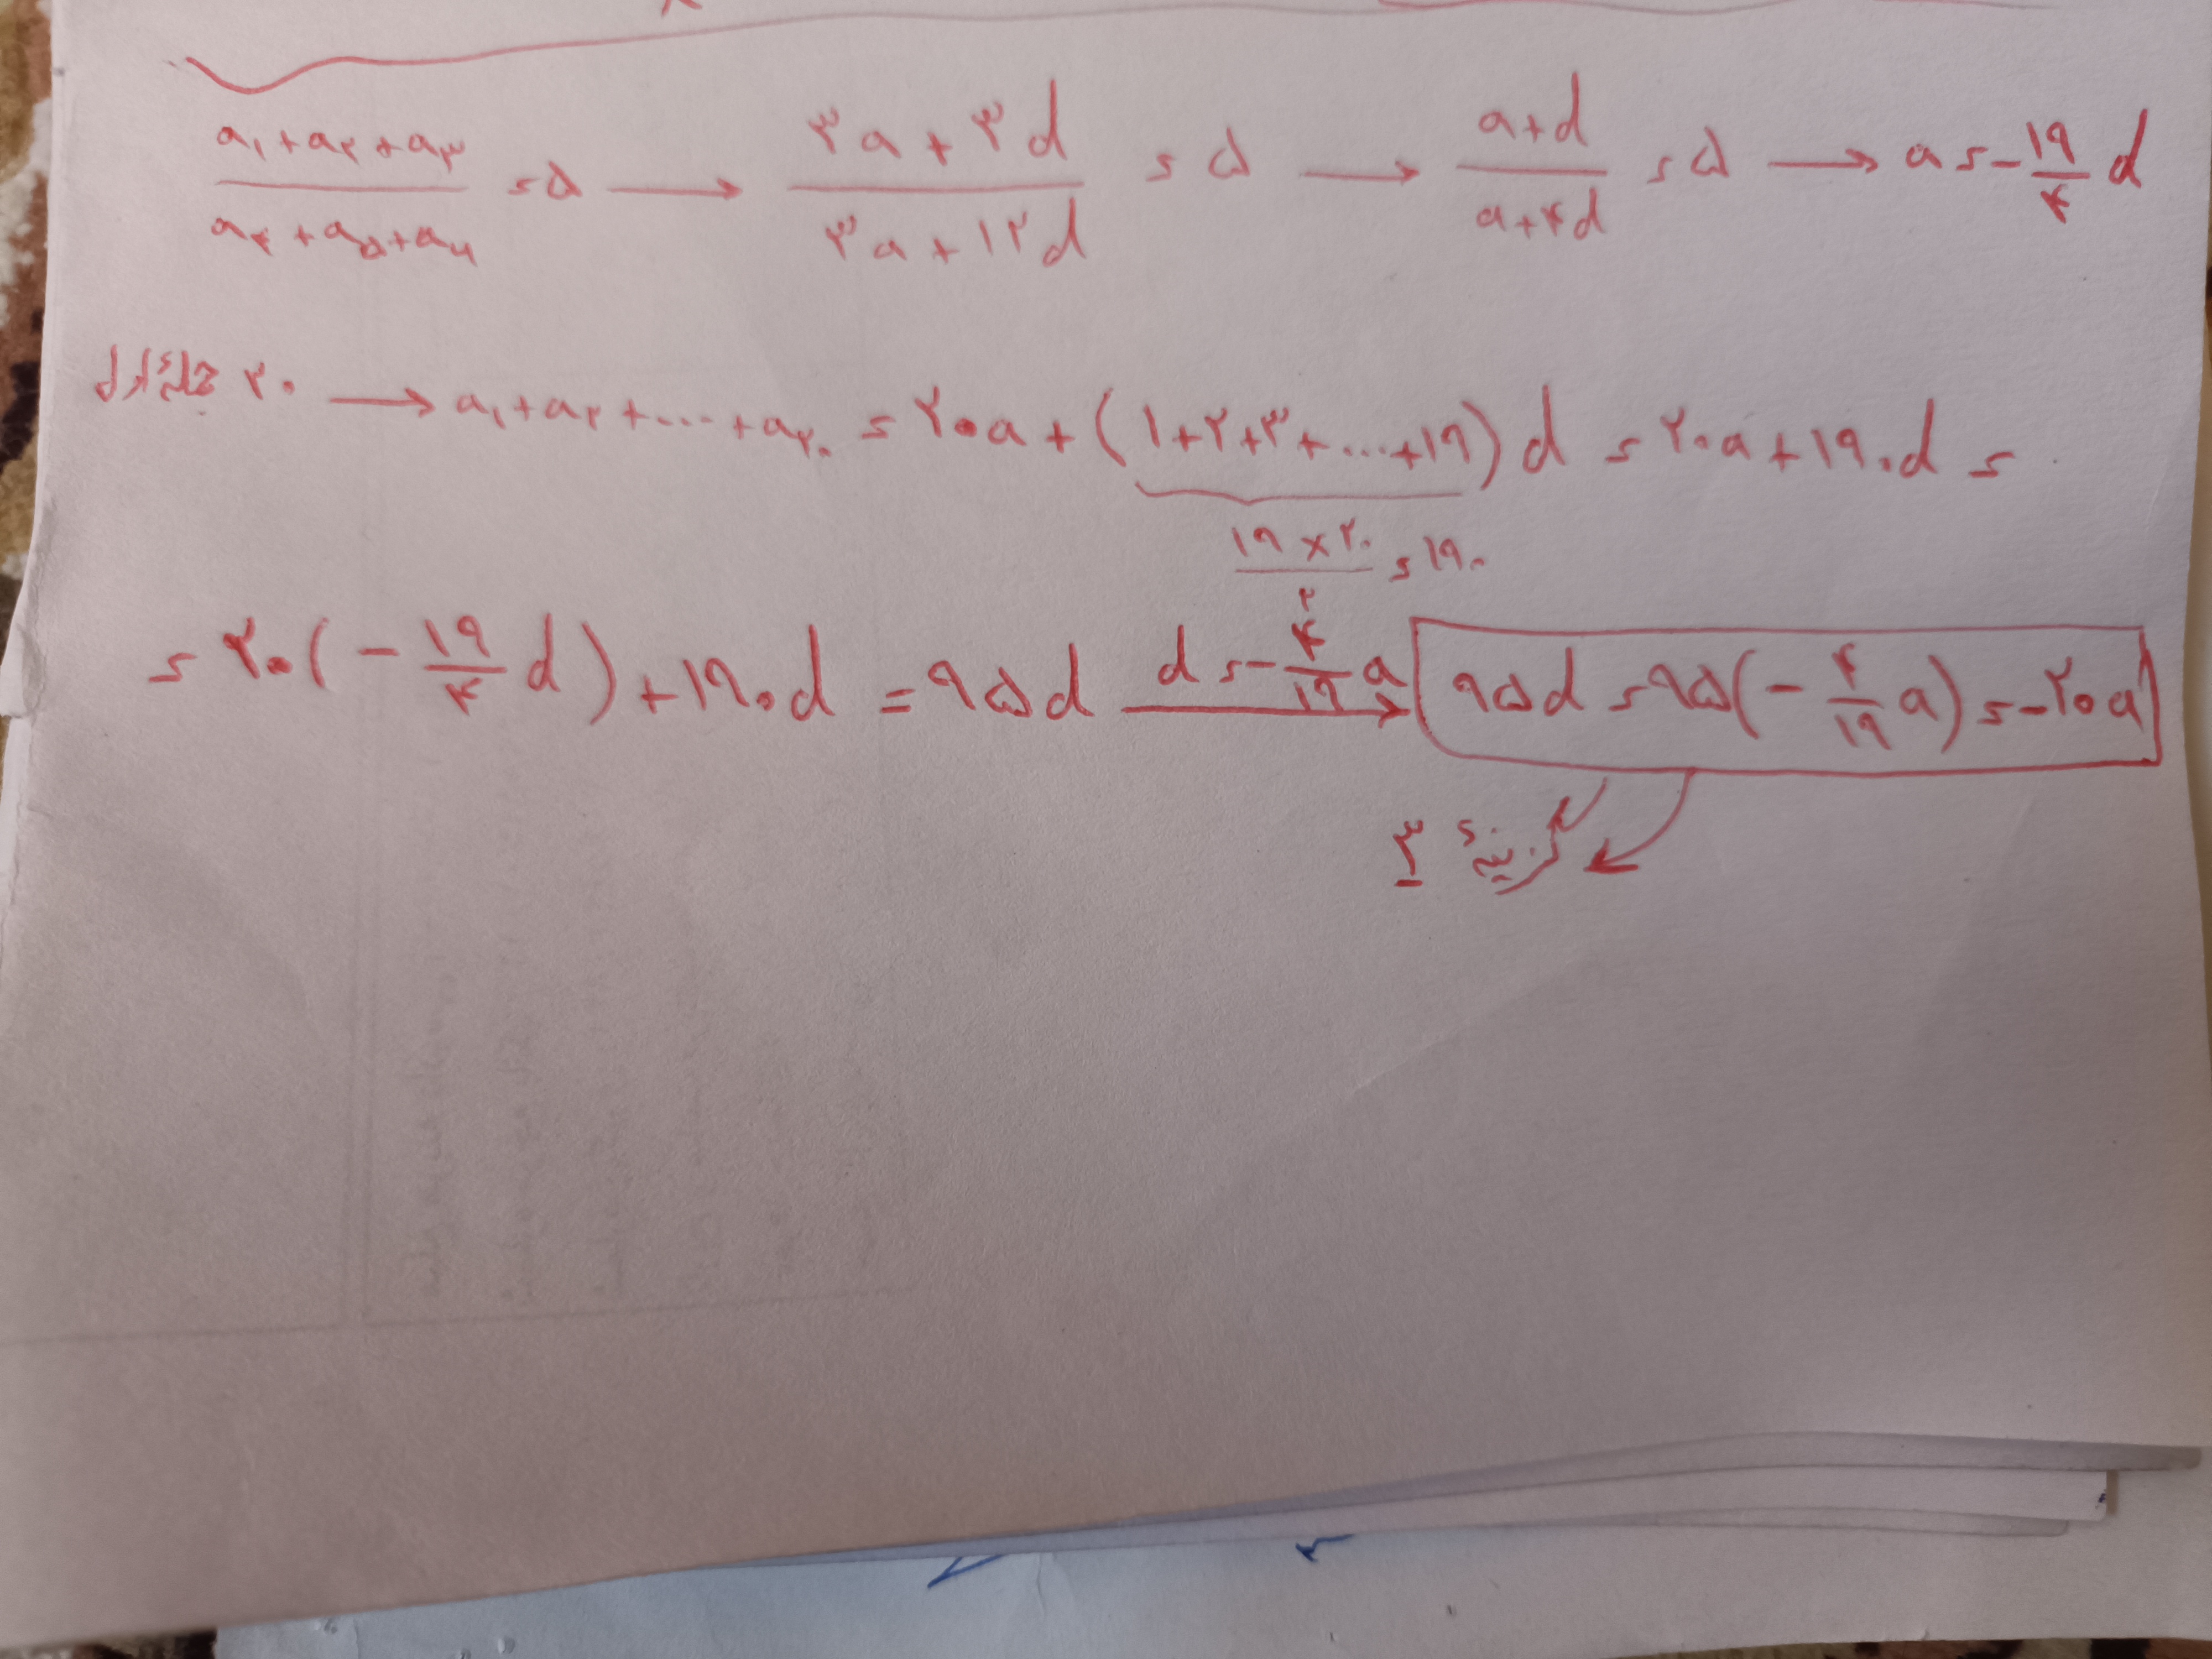 (a₁+a₂+a₃)/(a₄+a₅+a₆) = ۵ → (۳a+۳d)/(۳a+۱۲d) = ۵ → (a+d)/(a+۴d) = ۵ → a = -۱۹/۴ d
۲۰ جملهٔ اول → a₁+a₂+...+a₂₀ = ۲۰a + (۱+۲+۳+...+۱۹)d = ۲۰a+۱۹۰d =
(۱۹×۲۰)/۲ = ۱۹۰
= ۲۰(-۱۹/۴ d)+۱۹۰d = ۹۵d → d = -۴/۱۹ a → ۹۵d = ۹۵(-۴/۱۹ a) = -۲۰a
گزینهٔ ۳